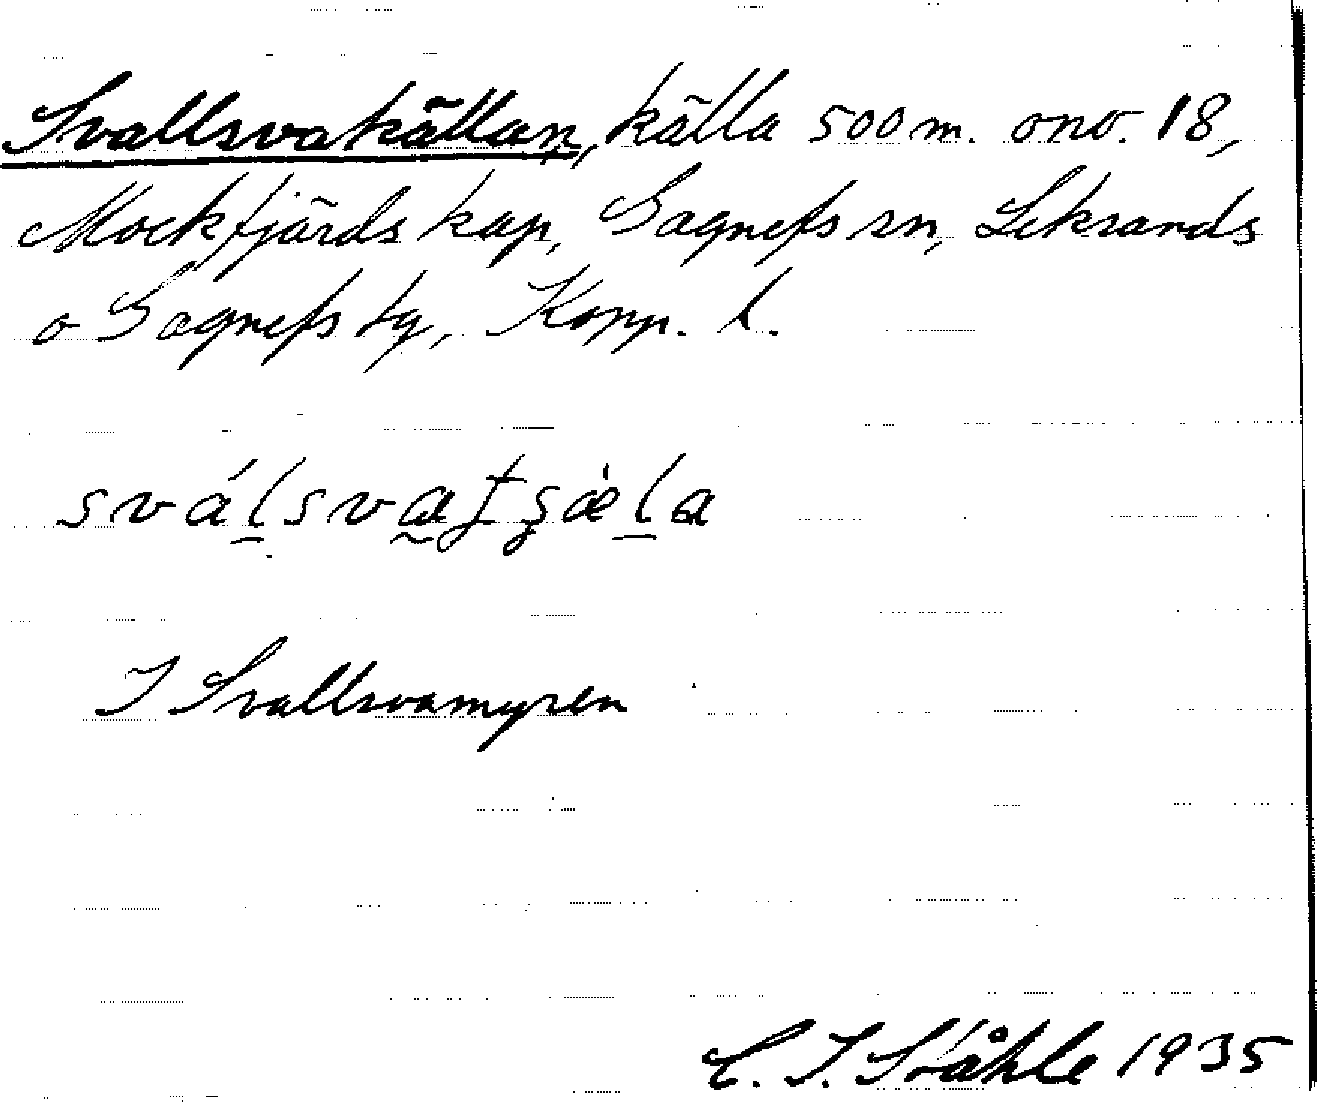 Svallsvakällan, källa 500 m. ono. 18,
Mockfjärds kap, Gagnefs sn, Leksands
o Gagnefs tg, Kopp. l.
sválsvaţşæ̀la
I Svallsvamyren
C. I. Ståhle 1935